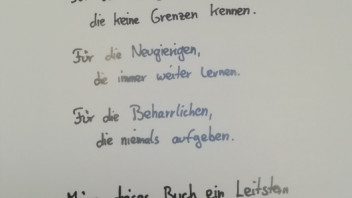 die keine Grenzen kennen.
Für die Neugierigen,
die immer weiter lernen.
Für die Beharrlichen,
die niemals aufgeben.
Buch ein Leitstein